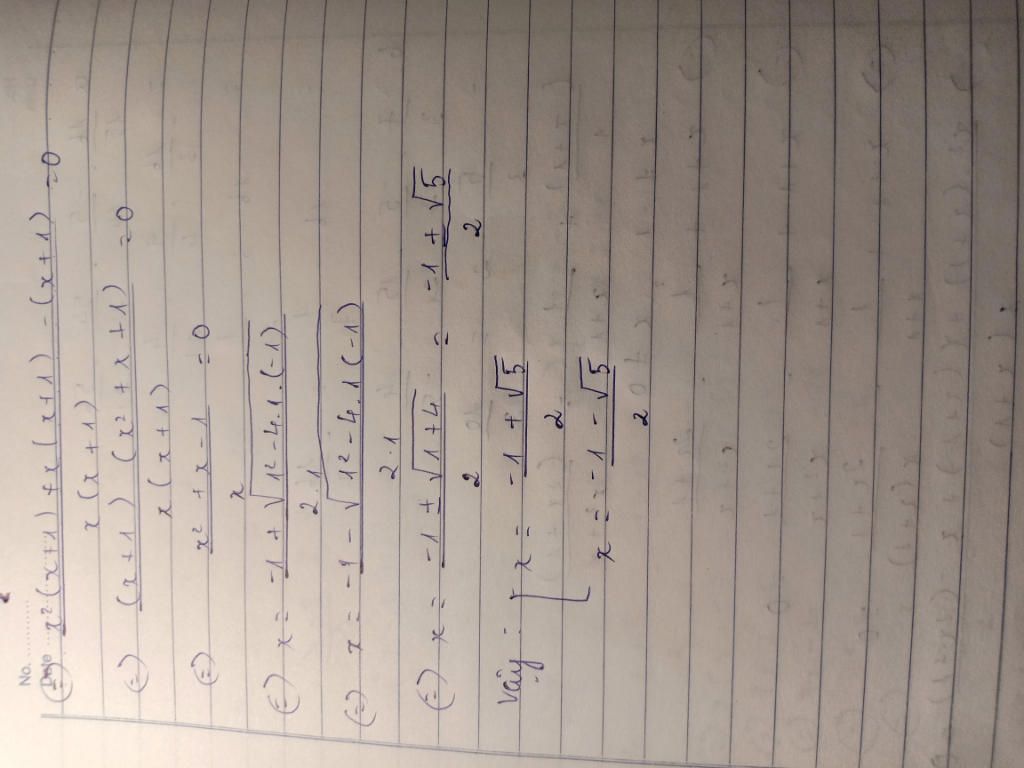 No.
Date
(=) x²(x+1) + x(x+1) - (x+1) = 0
x(x+1)
(=) (x+1) (x²+x+1) = 0
x(x+1)
(=) x² + x - 1 = 0
x
(=) x = -1 + √1² - 4.1.(-1)
2.1
(=) x = -1 - √1² - 4.1(-1)
2.1
(=) x = -1 + √1+4 = -1 + √5
2 2
Vậy: [ x = -1 + √5
2
x = -1 - √5
2